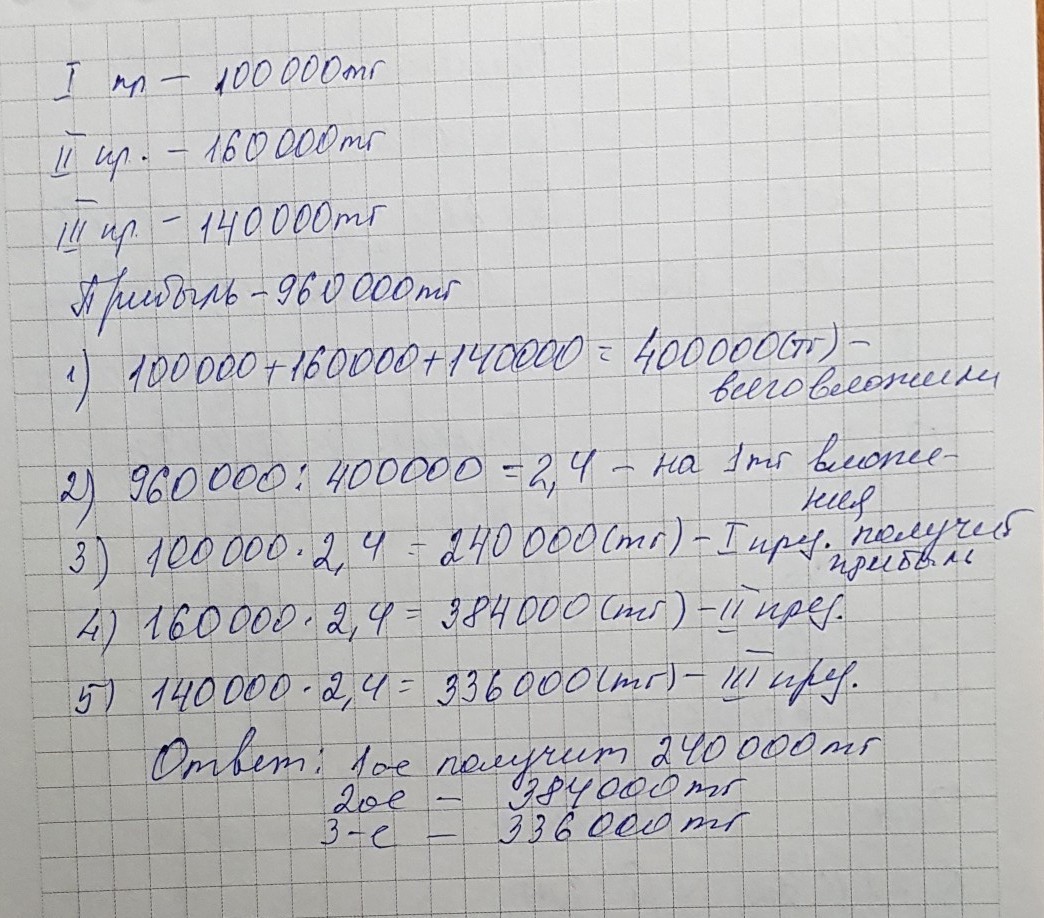 I пр - 100000тг
II пр. - 160000тг
III пр. - 140000тг
Прибыль - 960000тг
1) 100000+160000+140000 = 400000(тг) -
всего вложили
2) 960000 : 400000 = 2,4 - на 1тг вложе-
ния
3) 100000 · 2,4 = 240000(тг) - I пред. получит
прибыль
4) 160000 · 2,4 = 384000(тг) - II пред.
5) 140000 · 2,4 = 336000(тг) - III пред.
Ответ: 1ое получит 240000тг
2ое - 384000тг
3-е - 336000тг